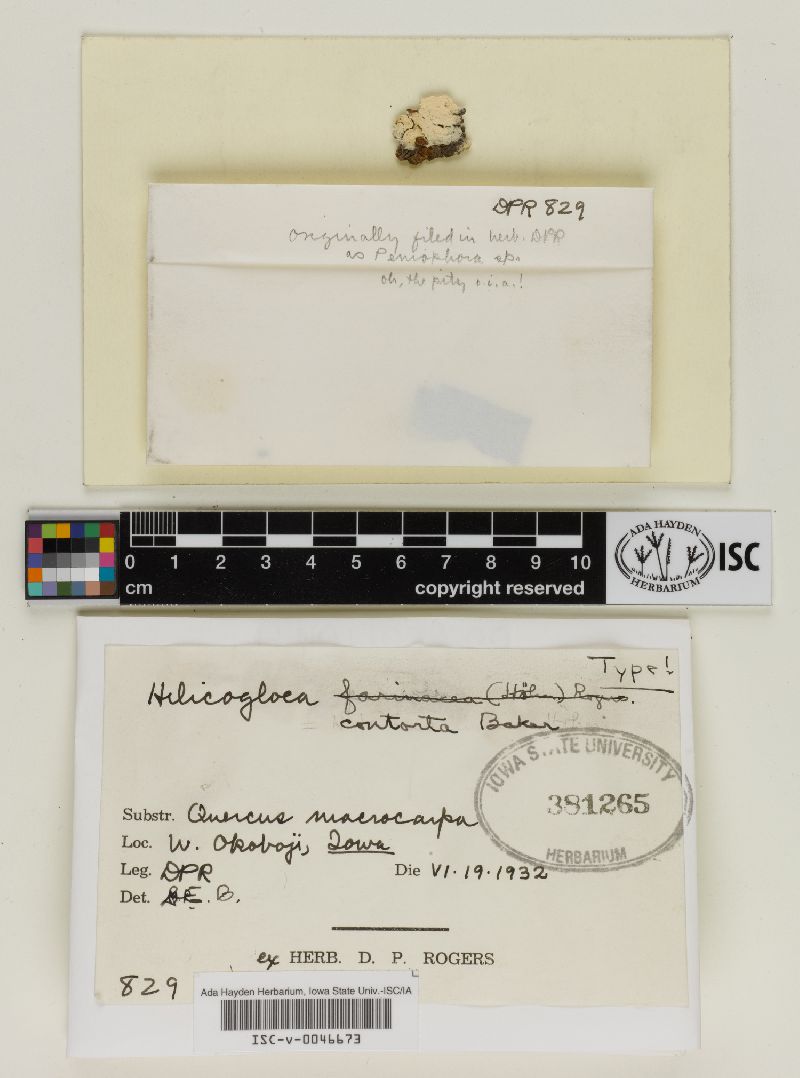 DPR 829
Originally filed in herb. DPR
as Peniophora sp.
oh, the pity o.i.a.!
0 1 2 3 4 5 6 7 8 9 10
cm
copyright reserved
ADA HAYDEN
HERBARIUM
ISC
Type!
Helicogloea farinacea (Höhn) Rogers.
contorta Baker
IOWA STATE UNIVERSITY
381265
HERBARIUM
Substr. Quercus macrocarpa
Loc. W. Okoboji, Iowa
Leg. DPR Die VI.19.1932
Det. G.E.B.
ex HERB. D. P. ROGERS
829
Ada Hayden Herbarium, Iowa State Univ.-ISC/IA
ISC-v-0046673